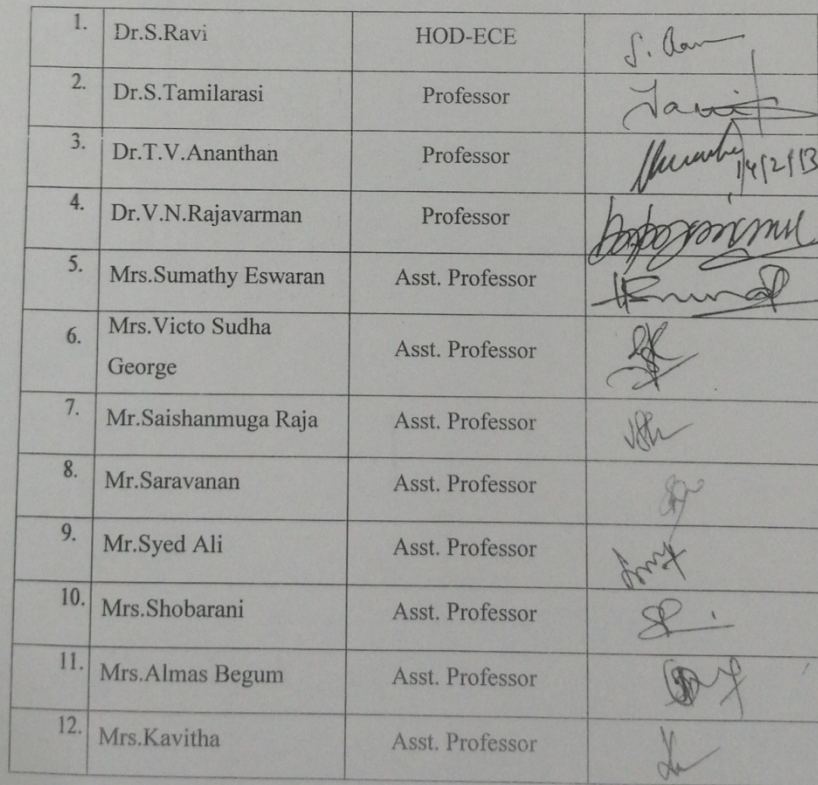 1. Dr.S.Ravi HOD-ECE S. Ravi
2. Dr.S.Tamilarasi Professor
3. Dr.T.V.Ananthan Professor 14/2/13
4. Dr.V.N.Rajavarman Professor
5. Mrs.Sumathy Eswaran Asst. Professor
6. Mrs.Victo Sudha
George Asst. Professor
7. Mr.Saishanmuga Raja Asst. Professor
8. Mr.Saravanan Asst. Professor
9. Mr.Syed Ali Asst. Professor
10. Mrs.Shobarani Asst. Professor
11. Mrs.Almas Begum Asst. Professor
12. Mrs.Kavitha Asst. Professor